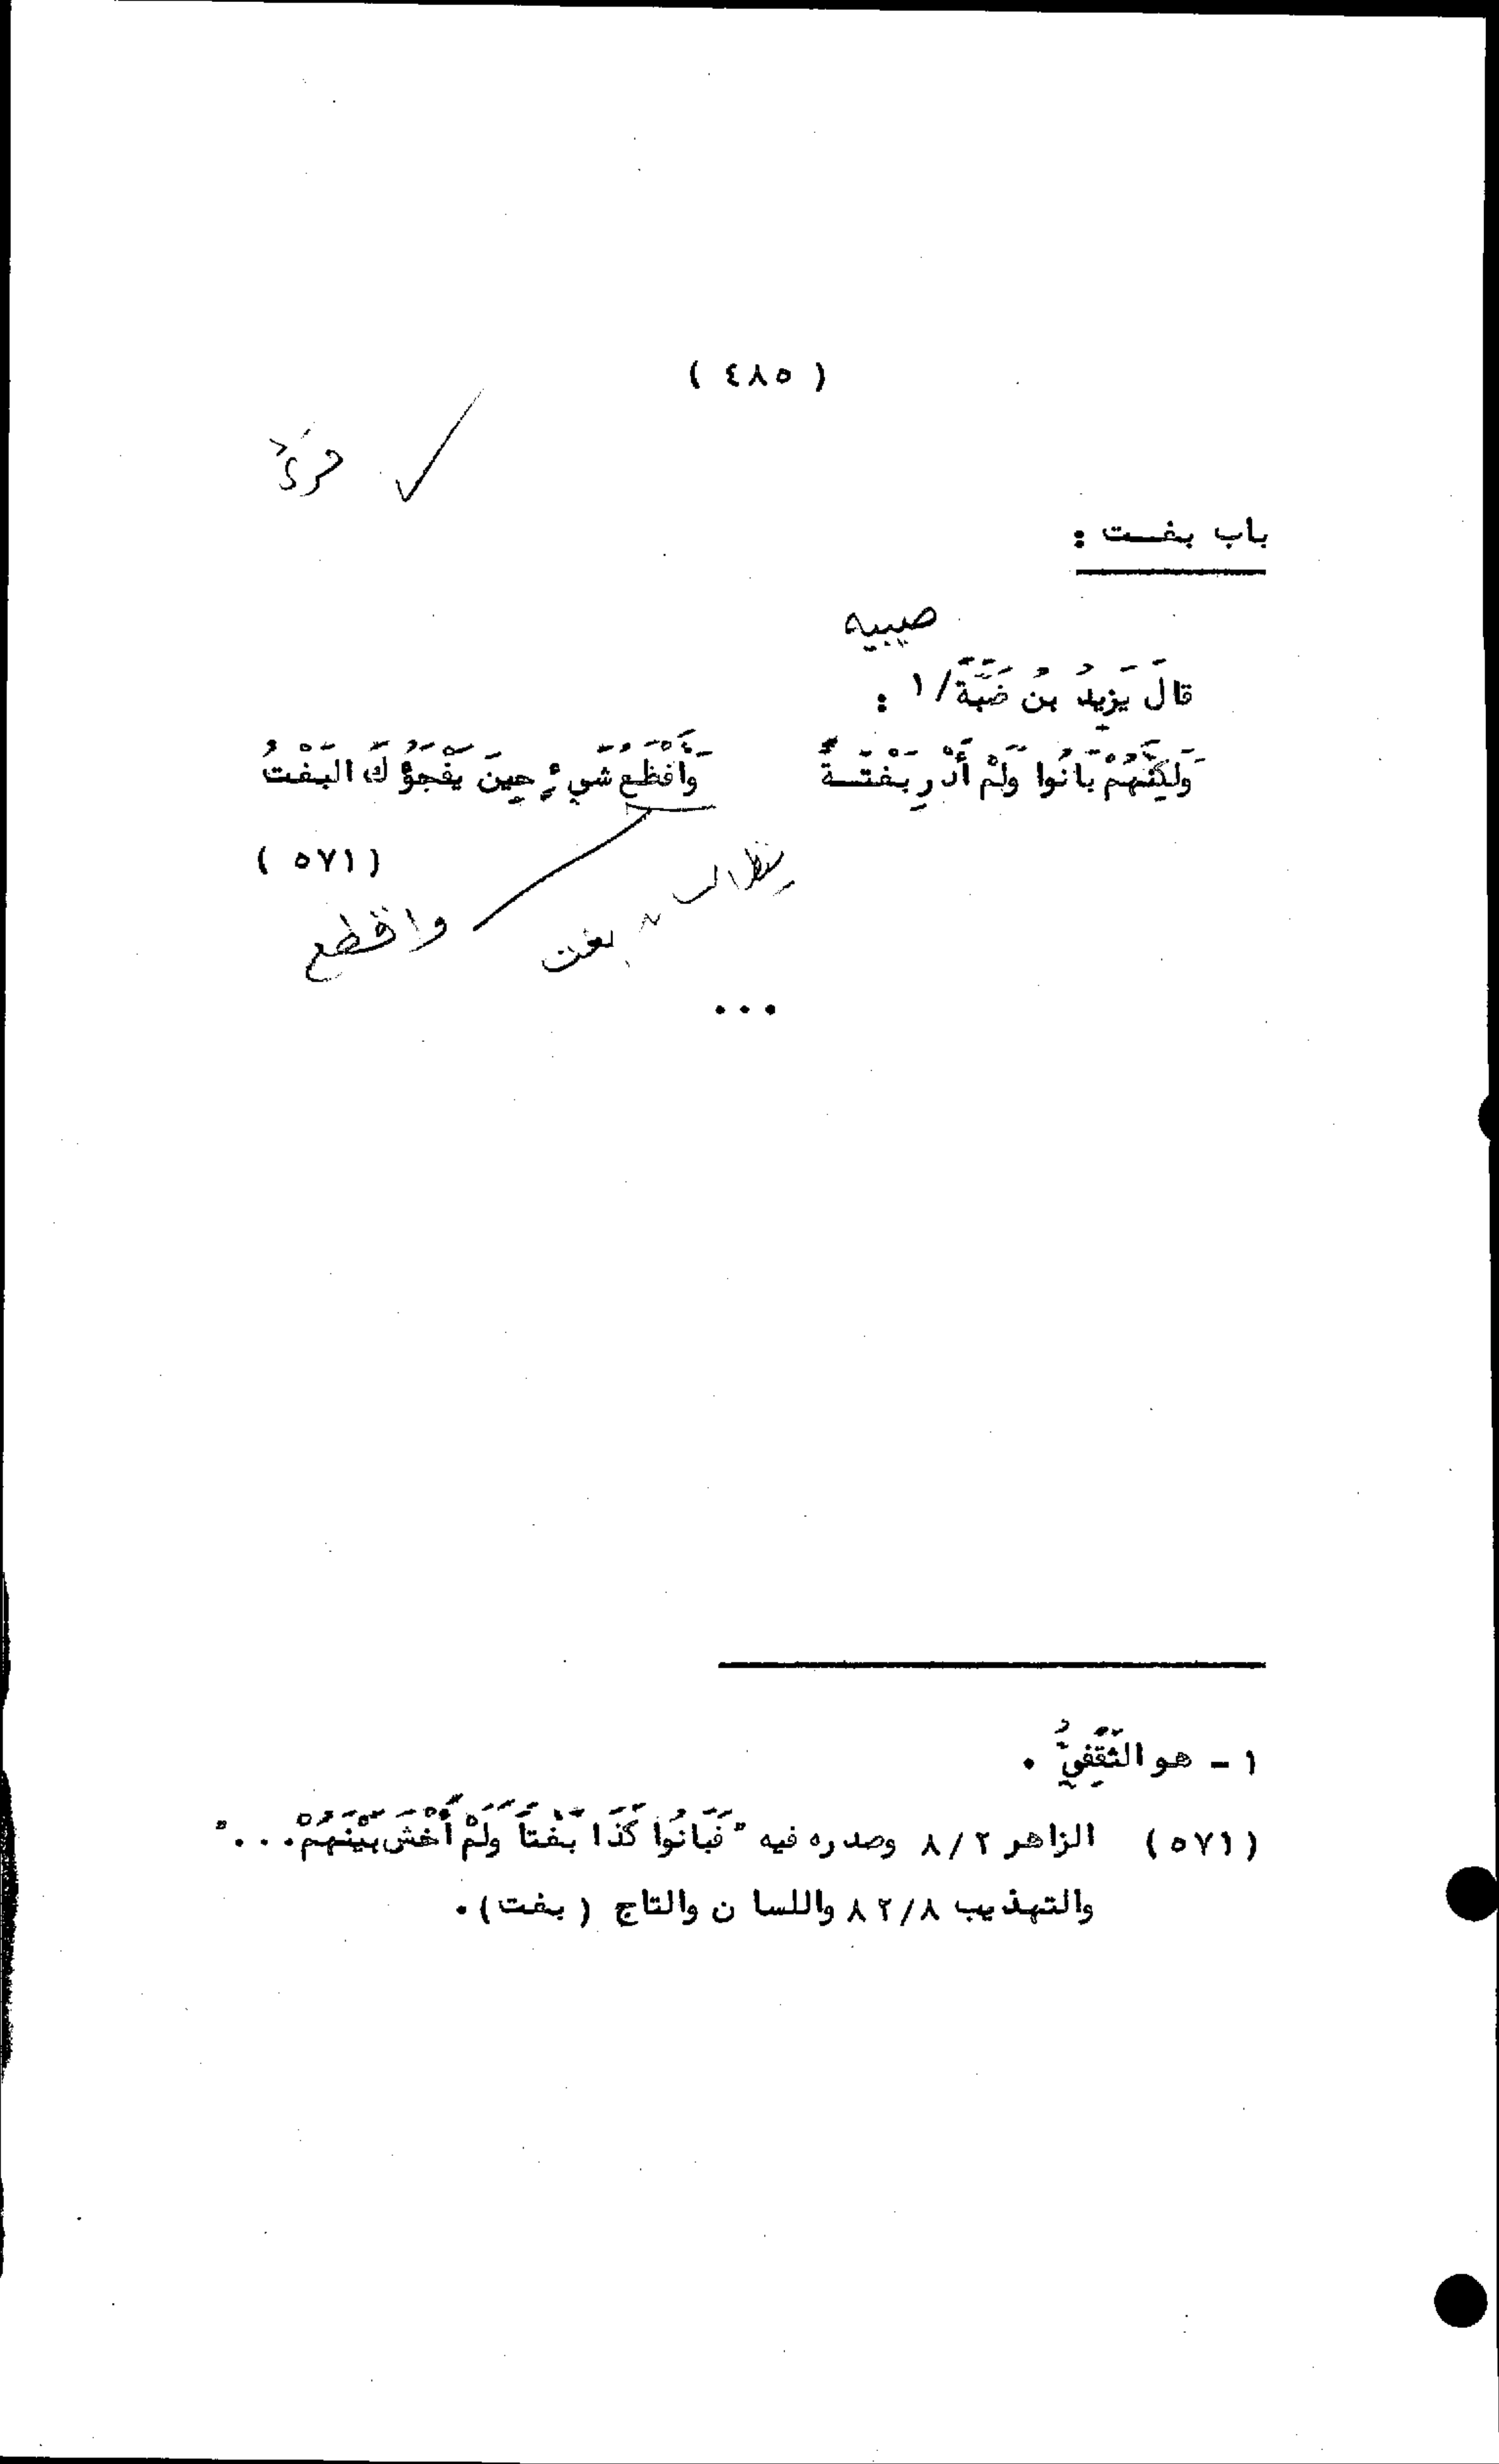 ( ٤٨٥ )
قرئ
باب بغـــت :
ضبيه
قالَ يَزِيدُ بنُ ضَبَّةَ/١ :
وَلَكِنَّهُمْ بَانُوا وَلَمْ أَدْرِ بَغْتَـــةً وَأَفْظَعُ شَيْءٍ حِينَ يَفْجَؤُكَ البَغْتُ
( ٥٧١ )
بغت
واقطع
...
١ - هو الثَّقَفِيُّ .
( ٥٧١ ) الزاهر ٨/٢ وصدره فيه "فَبَانُوا كَذَا بَغْتاً وَلَمْ أَخْشَ بَيْنَهُمْ..."
والتهذيب ٨٢/٨ واللسان والتاج ( بغت ) .